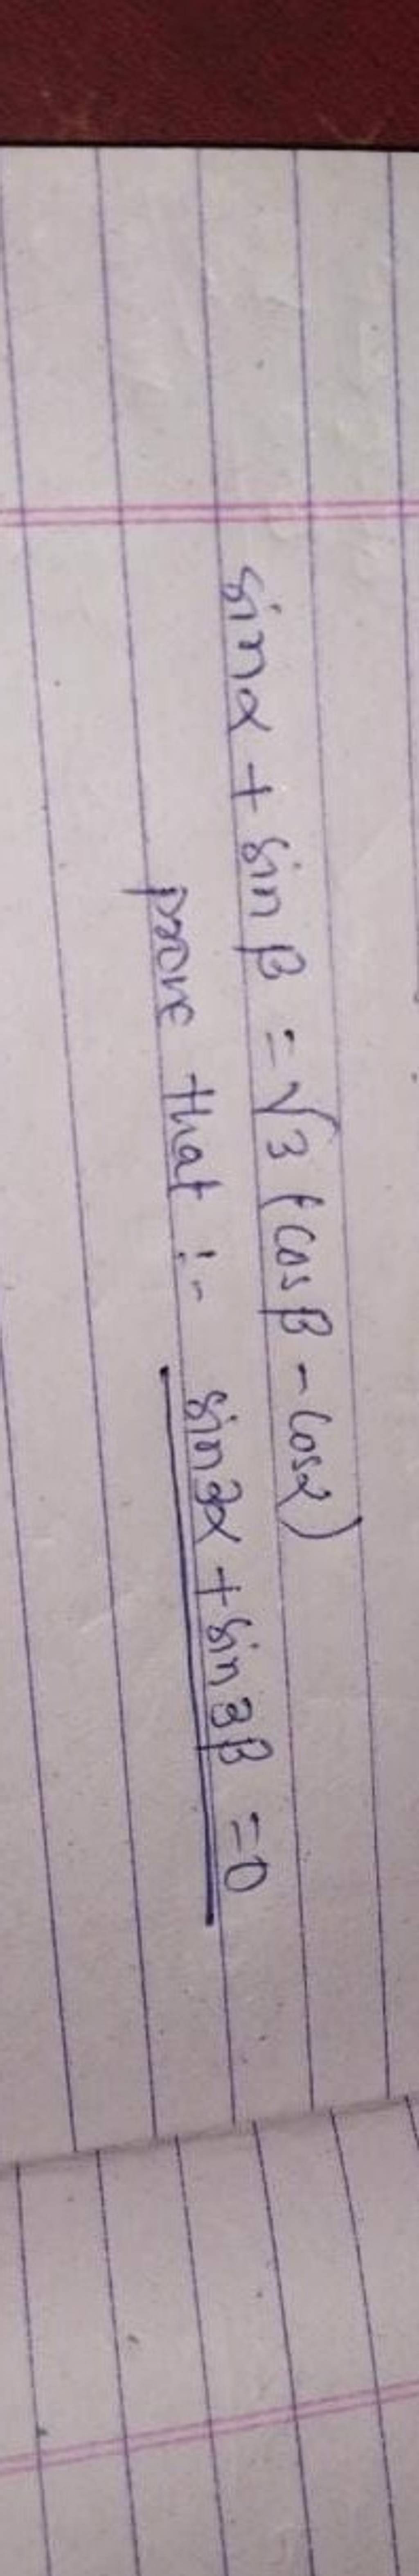 sinα + sin β = √3 (cos β - cosα)
prove that :- sin3α + sin3β = 0